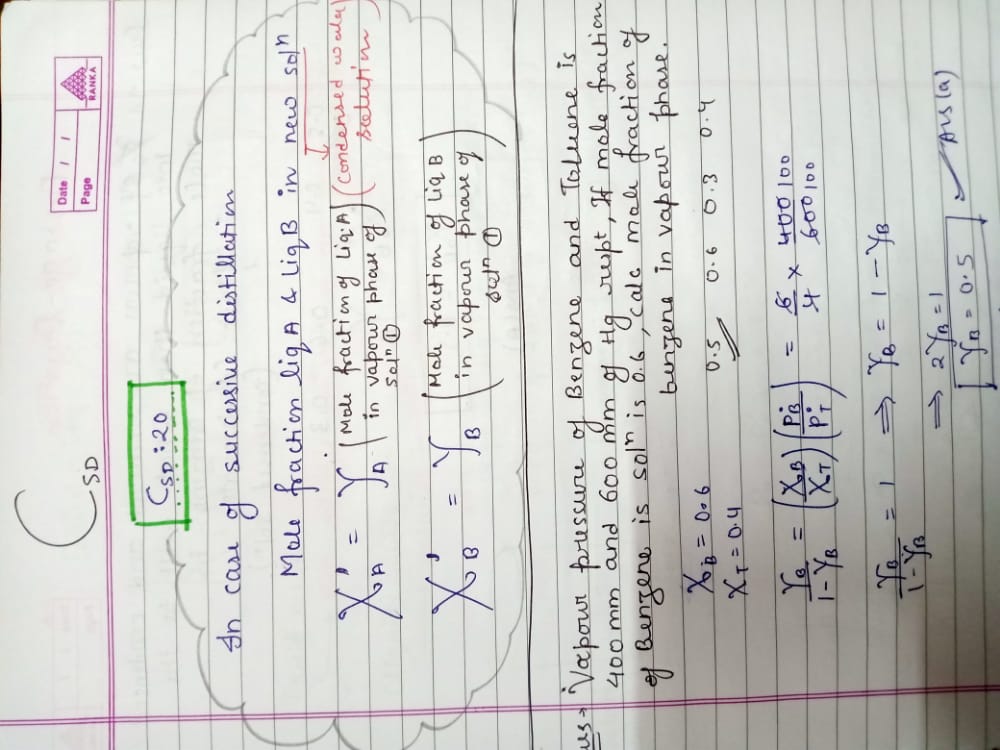 Date / /
Page
RANKA
C SD
C SD : 20
In case of successive distillation
Mole fraction liq A & Liq B in new solⁿ
X'A = YA (Mole fraction of Liq A in vapour phase of solⁿ ①) (condensed solution)
X'B = YB (Mole fraction of Liq B in vapour phase of solⁿ ①)
Vapour pressure of Benzene and Toluene is
400 mm and 600 mm of Hg respt, If mole fraction
of Benzene is solⁿ is 0.6, calc mole fraction of
benzene in vapour phase.
0.5 0.6 0.3 0.4
XB = 0.6
XT = 0.4
YB/1-YB = (XB/XT) (P°B/P°T) = 6/4 × 400 100/600 100
YB/1-YB = 1 ⇒ YB = 1 - YB
⇒ 2YB = 1
YB = 0.5 Ans (a)